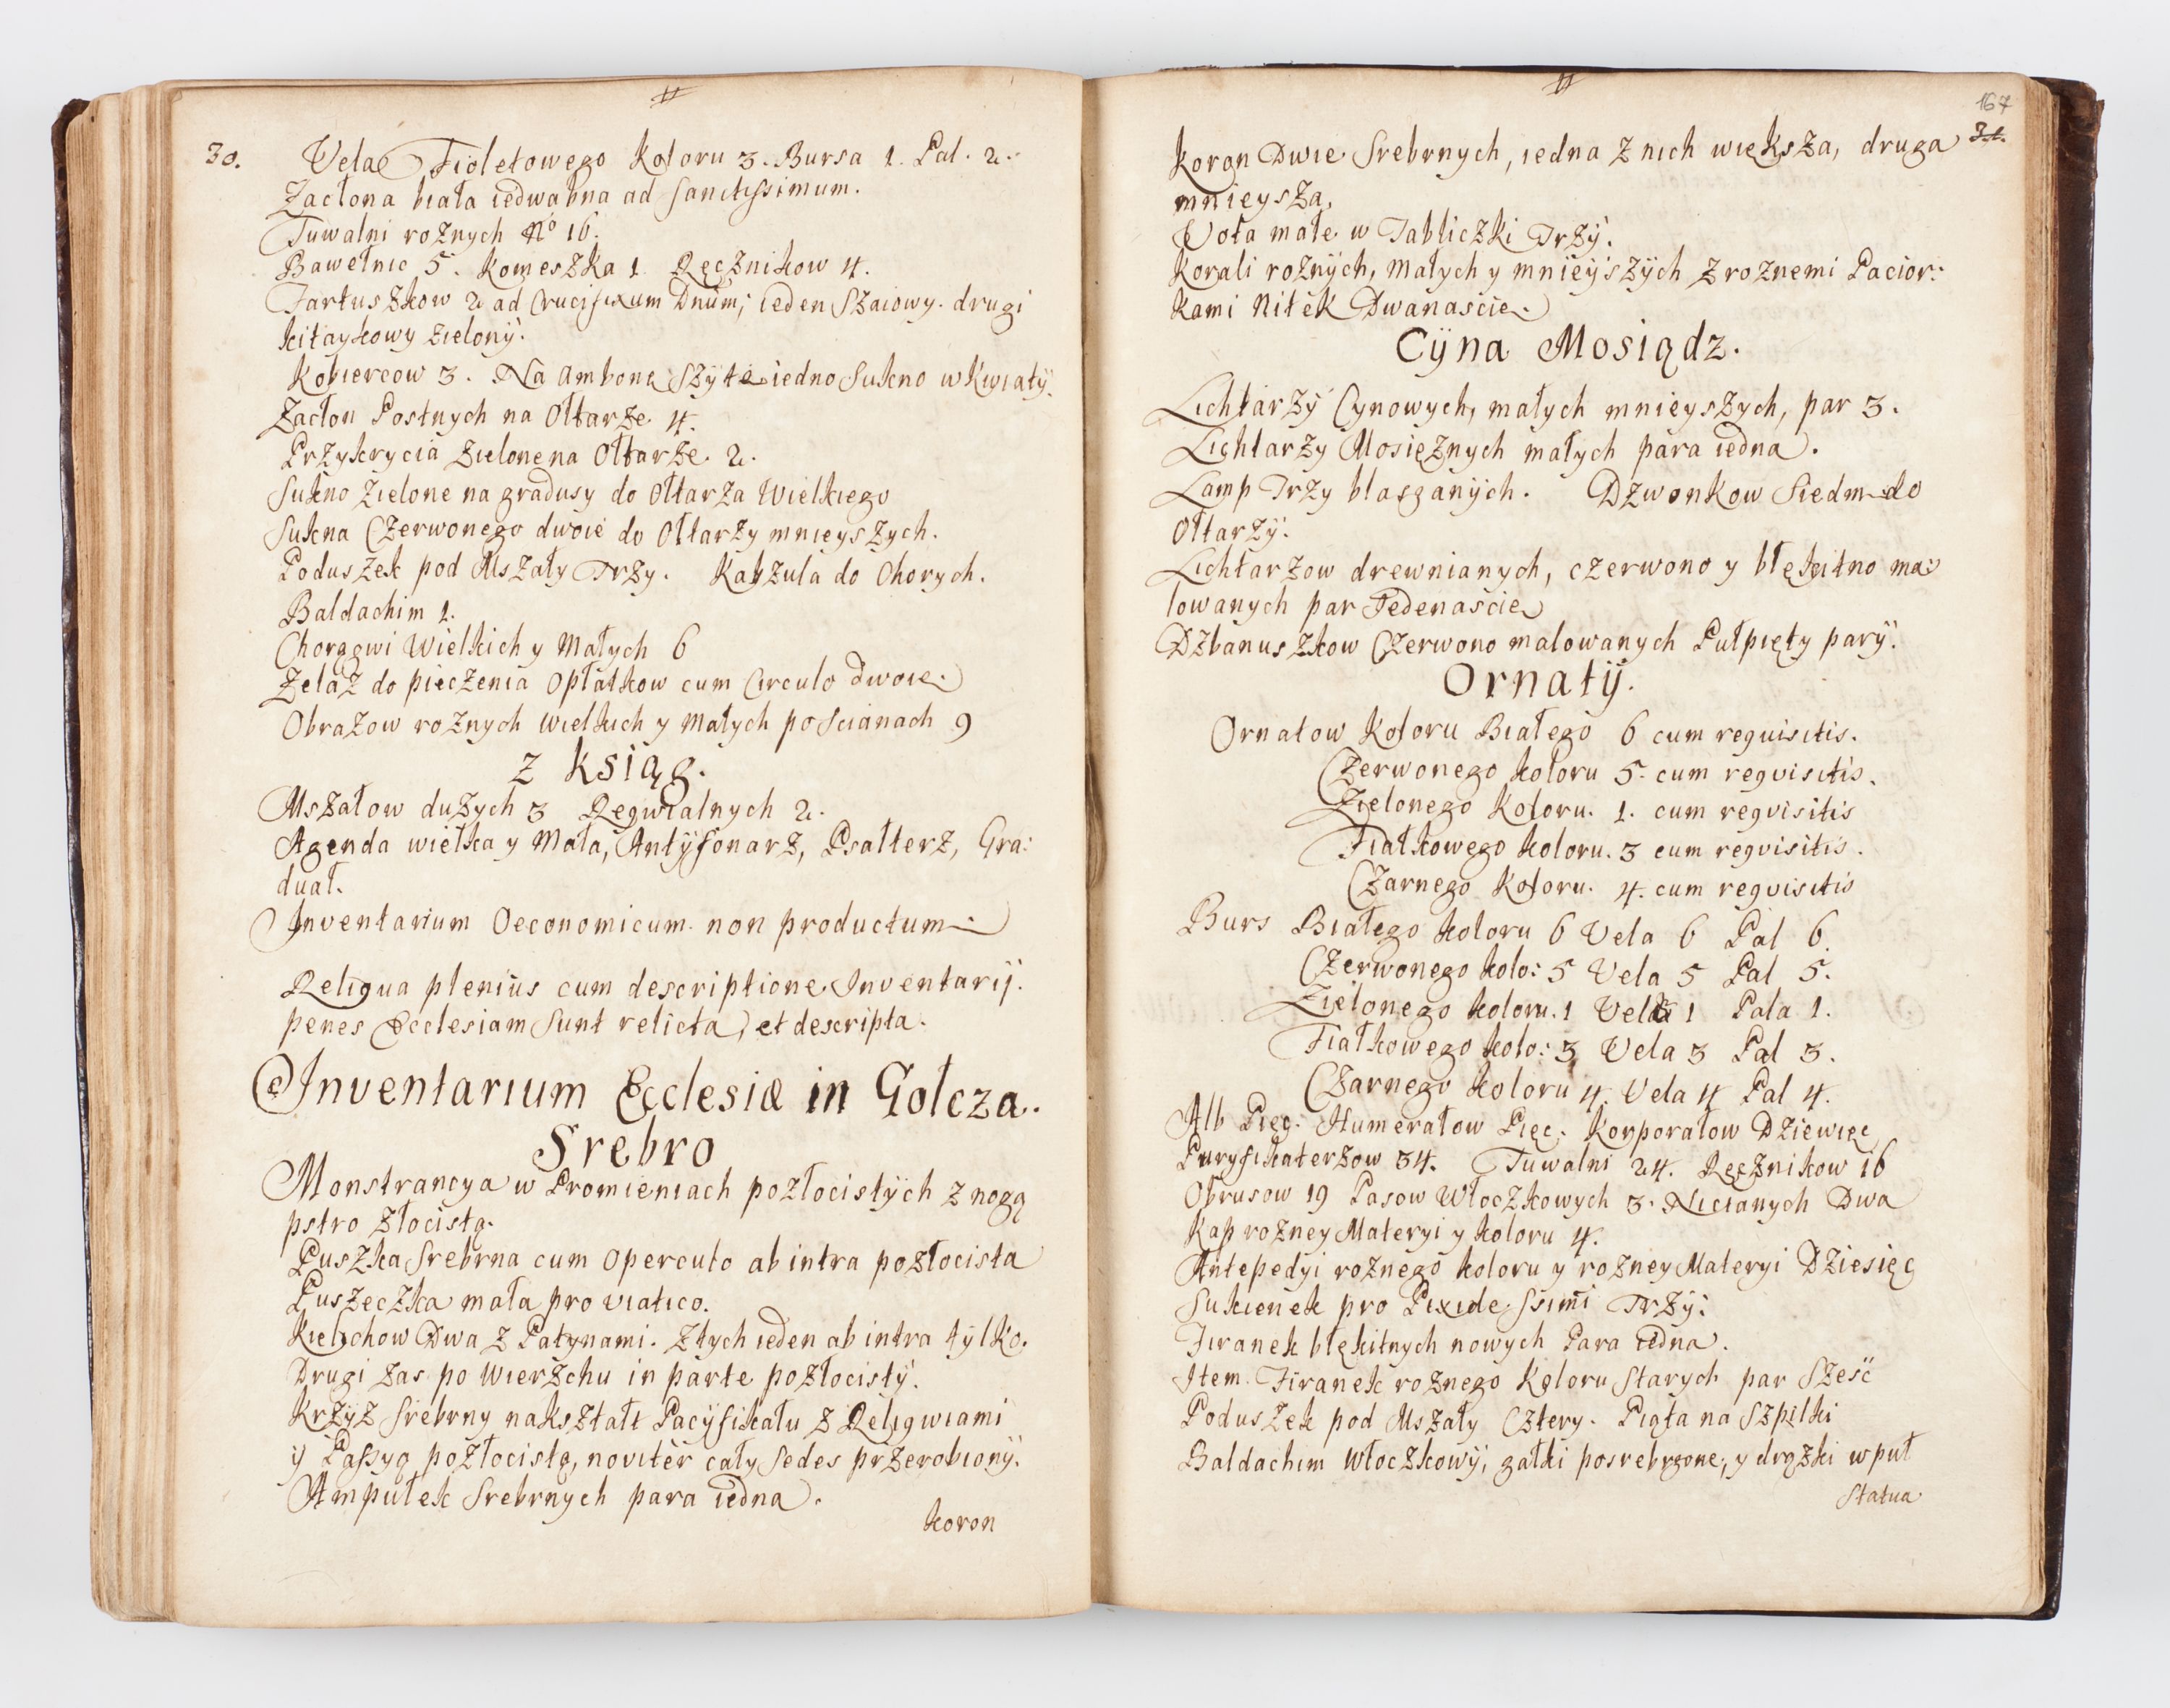 30. Vela Fioletowego Koloru 3. Bursa 1. Pal. 2.
Zaсłona biała iedwabna ad Sanctissimum.
Tuwalni rożnych No 16.
Bawełnic 5. Komeszka 1 Ręcznikow 4.
Fartuszkow 2 ad Crucifixum Dnum; ieden Szaiowy. drugi
kitaykowy zielony.
Kobiercow 3. Na Ambonę Szyte iedno Sukno w Kwiaty.
Zacłon Postnych na Ołtarze 4.
Przykrycia Zielone na Ołtarze 2.
Sukno Zielone na gradusy do Ołtarza Wielkiego
Sukna Czerwonego dwoie do Ołtarzy mnieyszych.
Poduszek pod Mszały Trzy. Kapzula do Chorych.
Baldachim 1.
Chorągwi Wielkich y Małych 6
Żelaz do pieczenia Opłatkow cum Circulo dwoie.
Obrazow rożnych wielkich y Małych po Scianach 9
Z Ksiąg.
Mszałow dużych 3 Reqwialnych 2.
Agenda wielka y Mała, Antyfonarz, Psałterz, Gra:
duał.
Inventarium Oeconomicum non productum
Reliqua plenius cum descriptione Inventarij
penes Ecclesiam Sunt relicta, et descripta.
Inventarium Ecclesiæ in Gołcza.
Srebro
Monstrancya w Promieniach pozłocistych z nogą
pstro złocistą.
Puszka Srebrna cum Operculo ab intra pozłocista
Puszeczka mała pro viatico.
Kielichow Dwa z Patynami. Z tych ieden ab intra tylko.
Drugi zas po Wierzchu in parte pozłocisty.
Krzyż Srebrny nakształt Pacyfikału z Reliqwiami
ÿ Passyą pozłocistą, noviter cały Sedes przerobiony.
Ampułek Srebrnych para iedna.
koron
167
31.
Koron Dwie Srebrnych, iedna z nich większa, druga
mnieysza,
Vota małe w Tabliczki Trzy.
Korali rożnych, Małych y mnieyszych z rożnemi Pacior:
kami Nitek Dwanascie.
Cyna Mosiądz.
Lichtarzy Cynowych, małych mnieyszych, par 3.
Lichtarzy Mosiężnych małych para iedna.
Lamp Trzy blaszanych. Dzwonkow Siedm do
Ołtarzy.
Lichtarzow drewnianych, czerwono y błękitno ma:
lowanych par Jedenascie
Dzbanuszkow Czerwono malowanych Pułpięty pary.
Ornaty.
Ornatow Koloru Białego 6 cum requisitis.
Czerwonego koloru 5. cum reqvisitis.
Zielonego Koloru. 1. cum reqvisitis
Fiałkowego koloru. 3 cum reqvisitis.
Czarnego Koloru. 4. cum reqvisitis
Burs Białego koloru 6 Vela 6 Pal 6.
Czerwonego kolo: 5 Vela 5 Pal 5.
Zielonego koloru. 1 Vela 1 Pala 1.
Fiałkowego kolo: 3 Vela 3 Pal 3.
Czarnego koloru 4. Vela 4 Pal 4.
Alb Pięc. Humerałow Pięc. Korporałow Dziewięc
Puryfikaterzow 34. Tuwalni 24. Ręcznikow 16
Obrusow 19 Pasow Włoczkowych 3. Nicianych Dwa
Kap rożney Materyi y koloru 4.
Antepedyi rożnego koloru y rożney Materyi Dziesięc
Sukienek pro Pixide Ssimi Trzy.
Firanek błękitnych nowych Para iedna.
Item Firanek rożnego Koloru Starych par Szesć
Poduszek pod Mszały Cztery. Piąta na Szpilki
Baldachim Włoczkowy, gałki posrebrzone, y drążki w puł
Statua